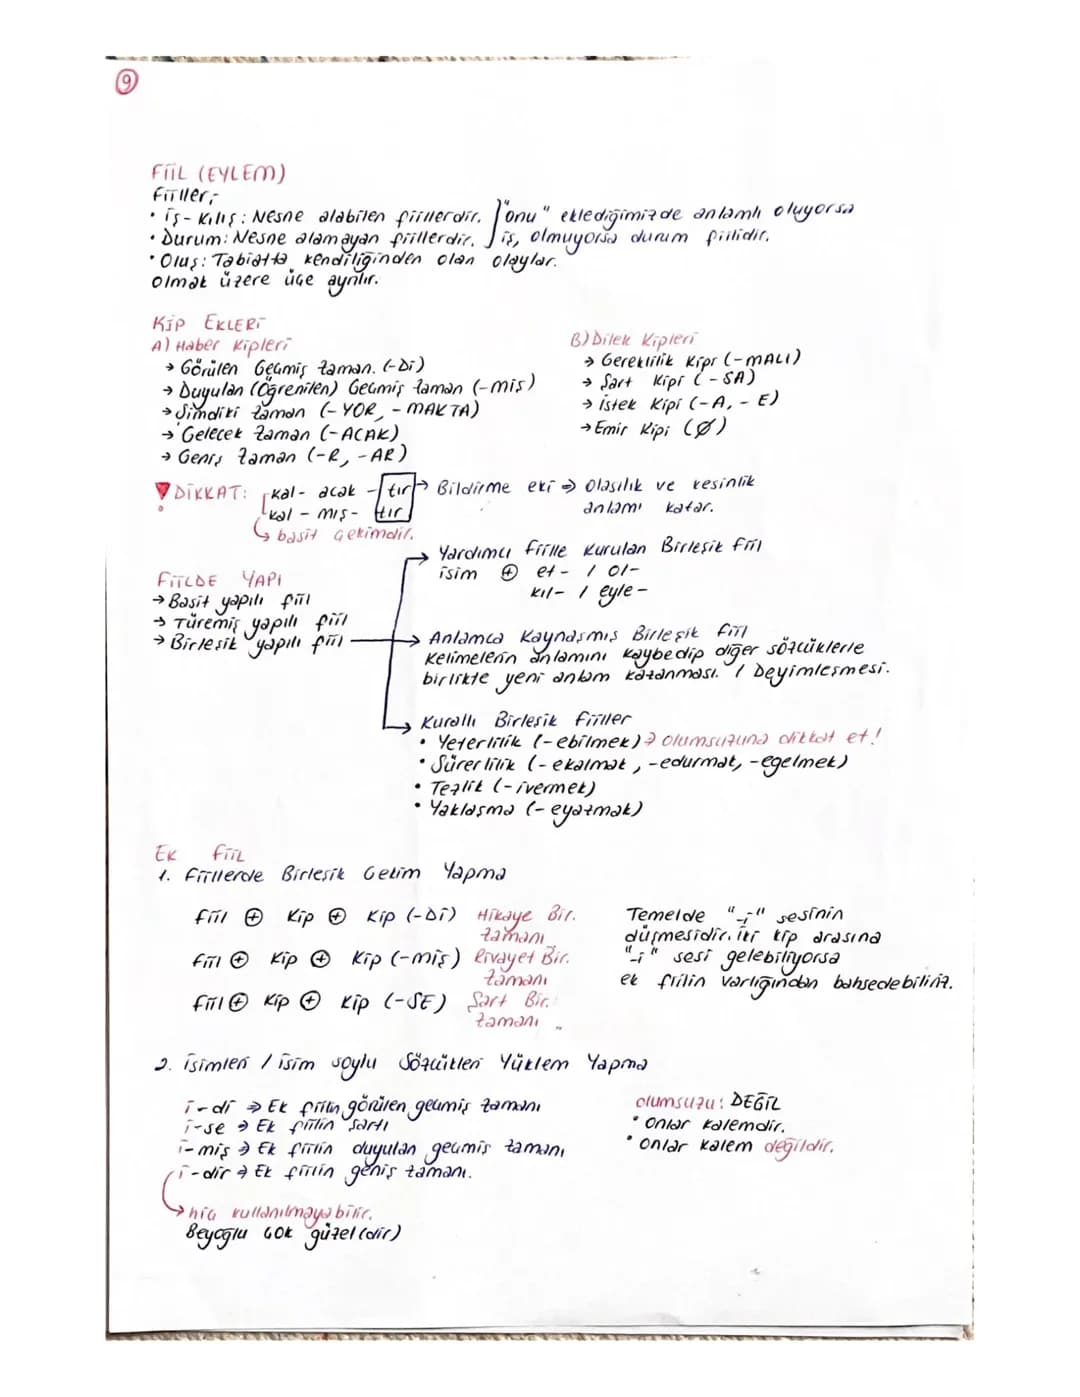 9
FİİL (EYLEM)
Fiiller;
• İş-Kılış: Nesne alabilen fiillerdir. "onu" eklediğimizde anlamlı oluyorsa
• Durum: Nesne alamayan fiillerdir. iş, olmuyorsa durum fiilidir.
• Oluş: Tabiatta kendiliğinden olan olaylar.
olmak üzere üçe ayrılır.
KİP EKLERİ
A) Haber Kipleri
→ Görülen Geçmiş Zaman. (-Dİ)
→ Duyulan (Öğrenilen) Geçmiş Zaman (-mİş)
→ Şimdiki Zaman (-YOR, -MAKTA)
→ Gelecek Zaman (-ACAK)
→ Geniş Zaman (-R, -AR)
B) Dilek Kipleri
→ Gereklilik Kipi (-MALI)
→ Şart Kipi (-SA)
→ İstek Kipi (-A, -E)
→ Emir Kipi (Ø)
DİKKAT: kal- acak - tır → Bildirme eki ⇒ Olasılık ve kesinlik
kal - mış- tır anlamı katar.
↳ basit çekimdir.
FİİLDE YAPI
→ Basit yapılı fiil
→ Türemiş yapılı fiil
→ Birleşik yapılı fiil
→ Yardımcı Fiille Kurulan Birleşik Fiil
isim ⊕ et- / ol-
kıl- / eyle-
→ Anlamca Kaynaşmış Birleşik Fiil
Kelimelerin anlamını kaybedip diğer sözcüklerle
birlikte yeni anlam kazanması. / Deyimleşmesi.
→ Kurallı Birleşik Fiiller
• Yeterlilik (-ebilmek) → olumsuzuna dikkat et!
• Sürerlilik (-ekalmak, -edurmak, -egelmek)
• Tezlik (-ivermek)
• Yaklaşma (-eyazmak)
EK FİİL
1. Fiillerde Birleşik Çekim Yapma
fiil ⊕ Kip ⊕ Kip (-Dİ) Hikaye Bir.
zamanı
fiil ⊕ Kip ⊕ Kip (-miş) Rivayet Bir.
zamanı
fiil ⊕ Kip ⊕ Kip (-SE) Şart Bir.
zamanı
Temelde "-i" sesinin
düşmesidir. İki kip arasına
"-i" sesi gelebiliyorsa
ek fiilin varlığından bahsedebiliriz.
2. İsimleri / isim soylu Sözcükleri Yüklem Yapma
i-di ⇒ Ek fiilin görülen geçmiş zamanı
i-se → Ek fiilin şartı
i-miş → Ek fiilin duyulan geçmiş zamanı
i-dir → Ek fiilin geniş zamanı.
↳ hiç kullanılmayabilir.
Beyoğlu çok güzel (dir)
olumsuzu: DEĞİL
• Onlar kalemdir.
• Onlar kalem değildir.